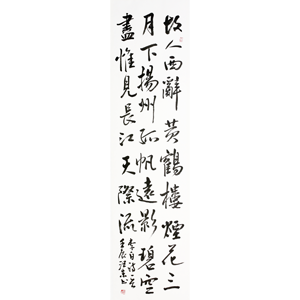 故人西辭黃鶴樓煙花三
月下揚州孤帆遠影碧空
盡惟見長江天際流
李白詩一首
壬辰